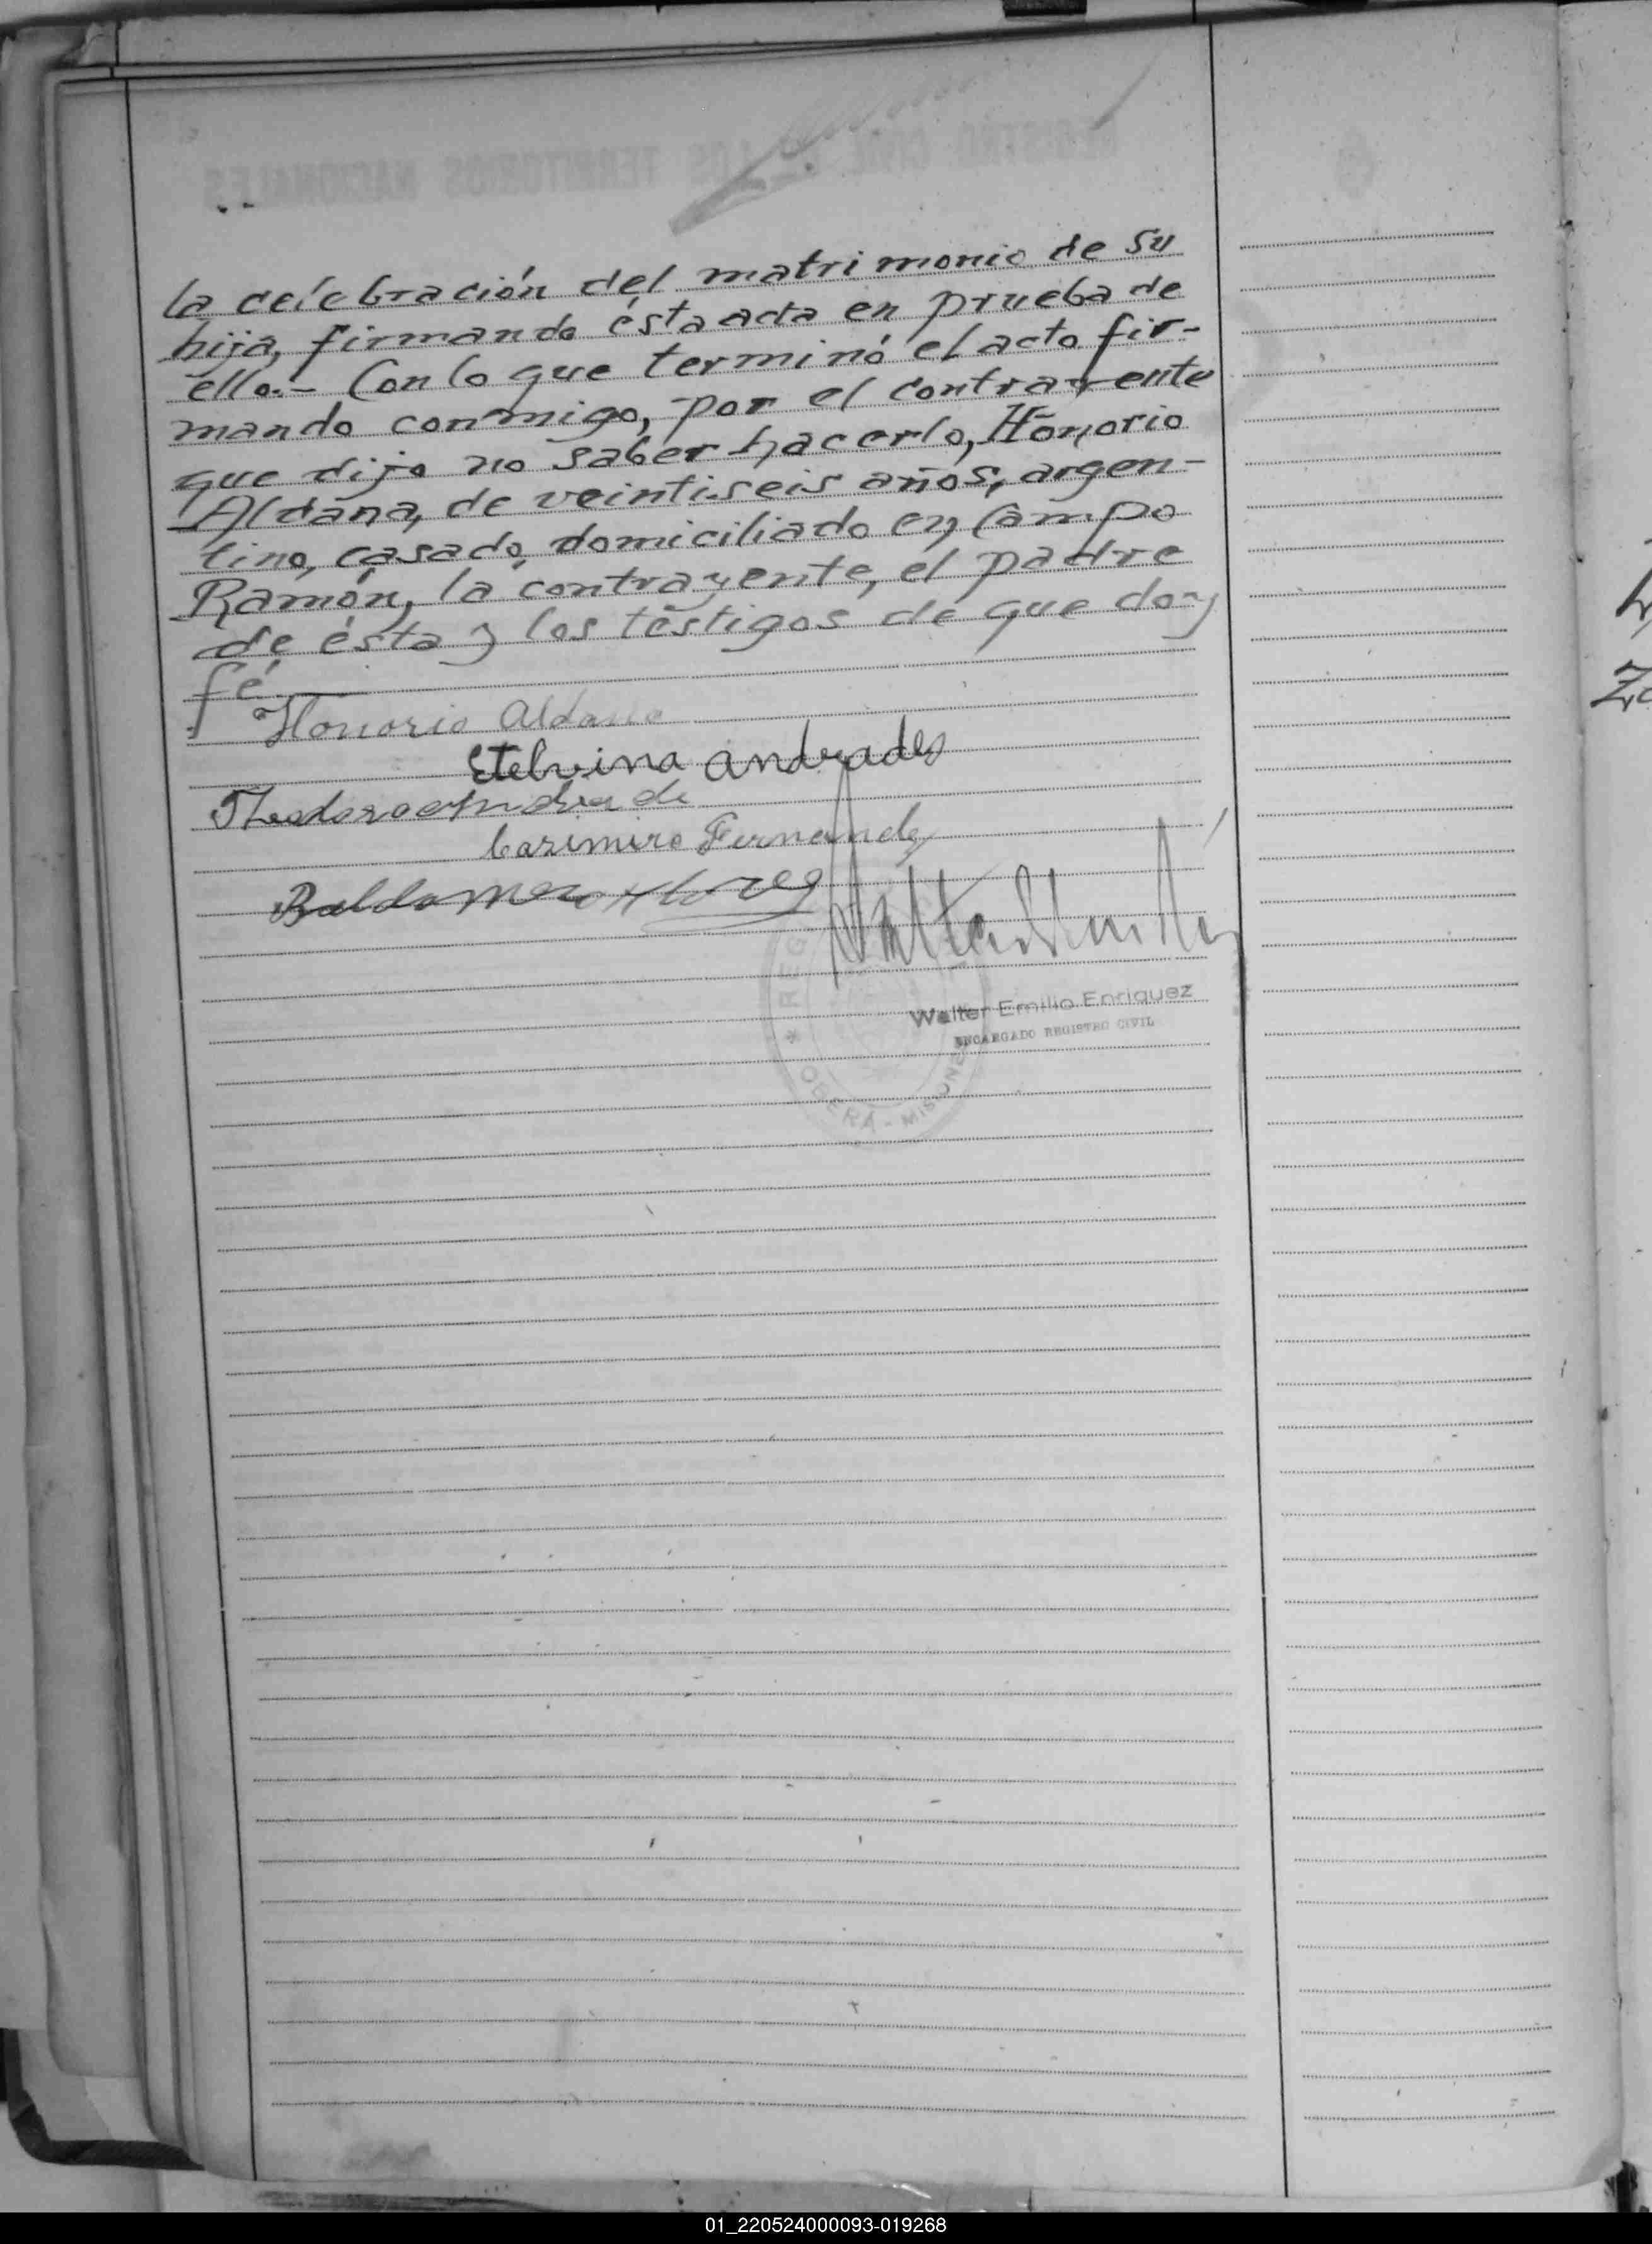 la celebración del matrimonio de su
hija, firmando ésta acta en prueba de
ello.- Con lo que terminó el acto fir-
mando conmigo, por el contrayente
que dijo no saber hacerlo, Honorio
Aldana, de veintiseis años, argen-
tino, casado, domiciliado en Campo
Ramón, la contrayente, el padre
de ésta y los testigos de que doy
fé.
Honorio Aldana
Etelvina Andrades
Theodoro Andrade
Casimiro Fernandez
Baldomero Flores
Walter Emilio Enriquez
ENCARGADO REGISTRO CIVIL
OBERÁ - MISIONES
01_220524000093-019268